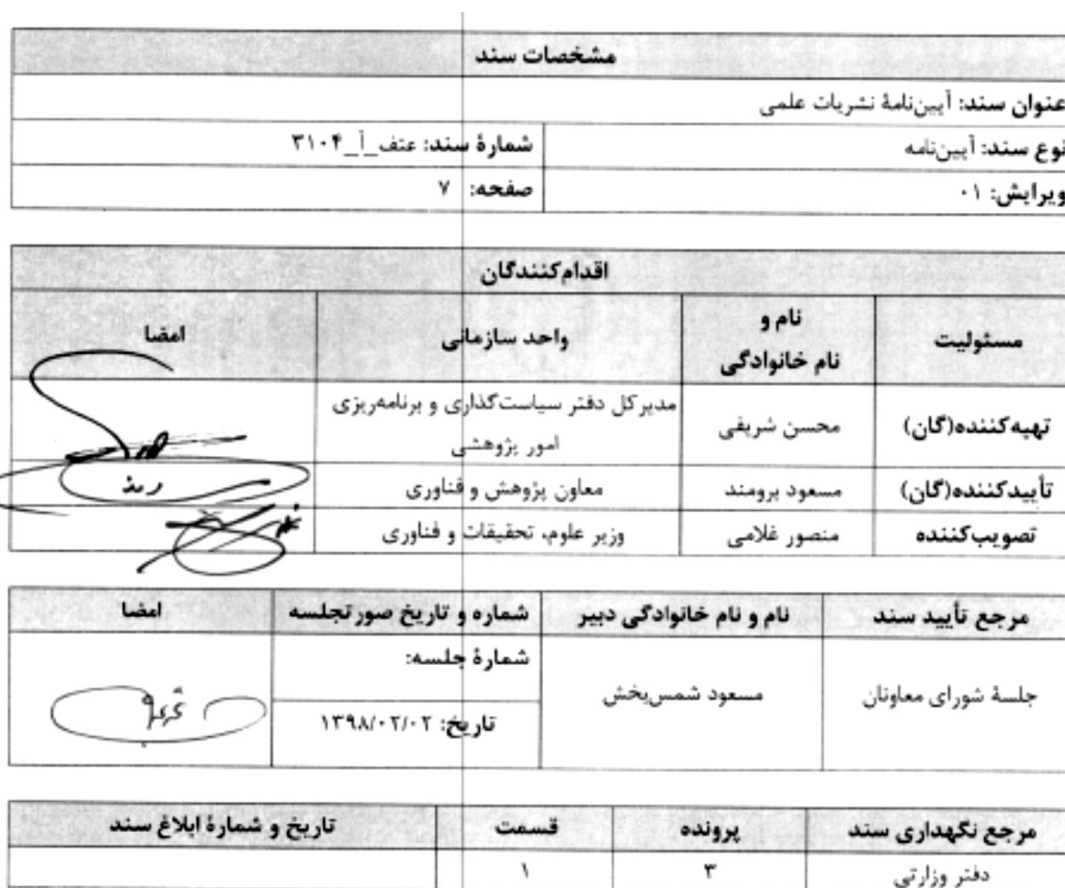 مشخصات سند
عنوان سند: آیین‌نامهٔ نشریات علمی
نوع سند: آیین‌نامه
شمارهٔ سند: عتف_آ_۳۱۰۴
ویرایش: ۰۱
صفحه: ۷
اقدام‌کنندگان
مسئولیت
نام و
نام خانوادگی
واحد سازمانی
امضا
تهیه‌کننده(گان)
محسن شریفی
مدیرکل دفتر سیاست‌گذاری و برنامه‌ریزی
امور پژوهشی
تأییدکننده(گان)
مسعود برومند
معاون پژوهش و فناوری
تصویب‌کننده
منصور غلامی
وزیر علوم، تحقیقات و فناوری
مرجع تأیید سند
نام و نام خانوادگی دبیر
شماره و تاریخ صورتجلسه
امضا
جلسهٔ شورای معاونان
مسعود شمس‌بخش
شمارهٔ جلسه:
تاریخ: ۱۳۹۸/۰۲/۰۲
مرجع نگهداری سند
پرونده
قسمت
تاریخ و شمارهٔ ابلاغ سند
دفتر وزارتی
۳
۱